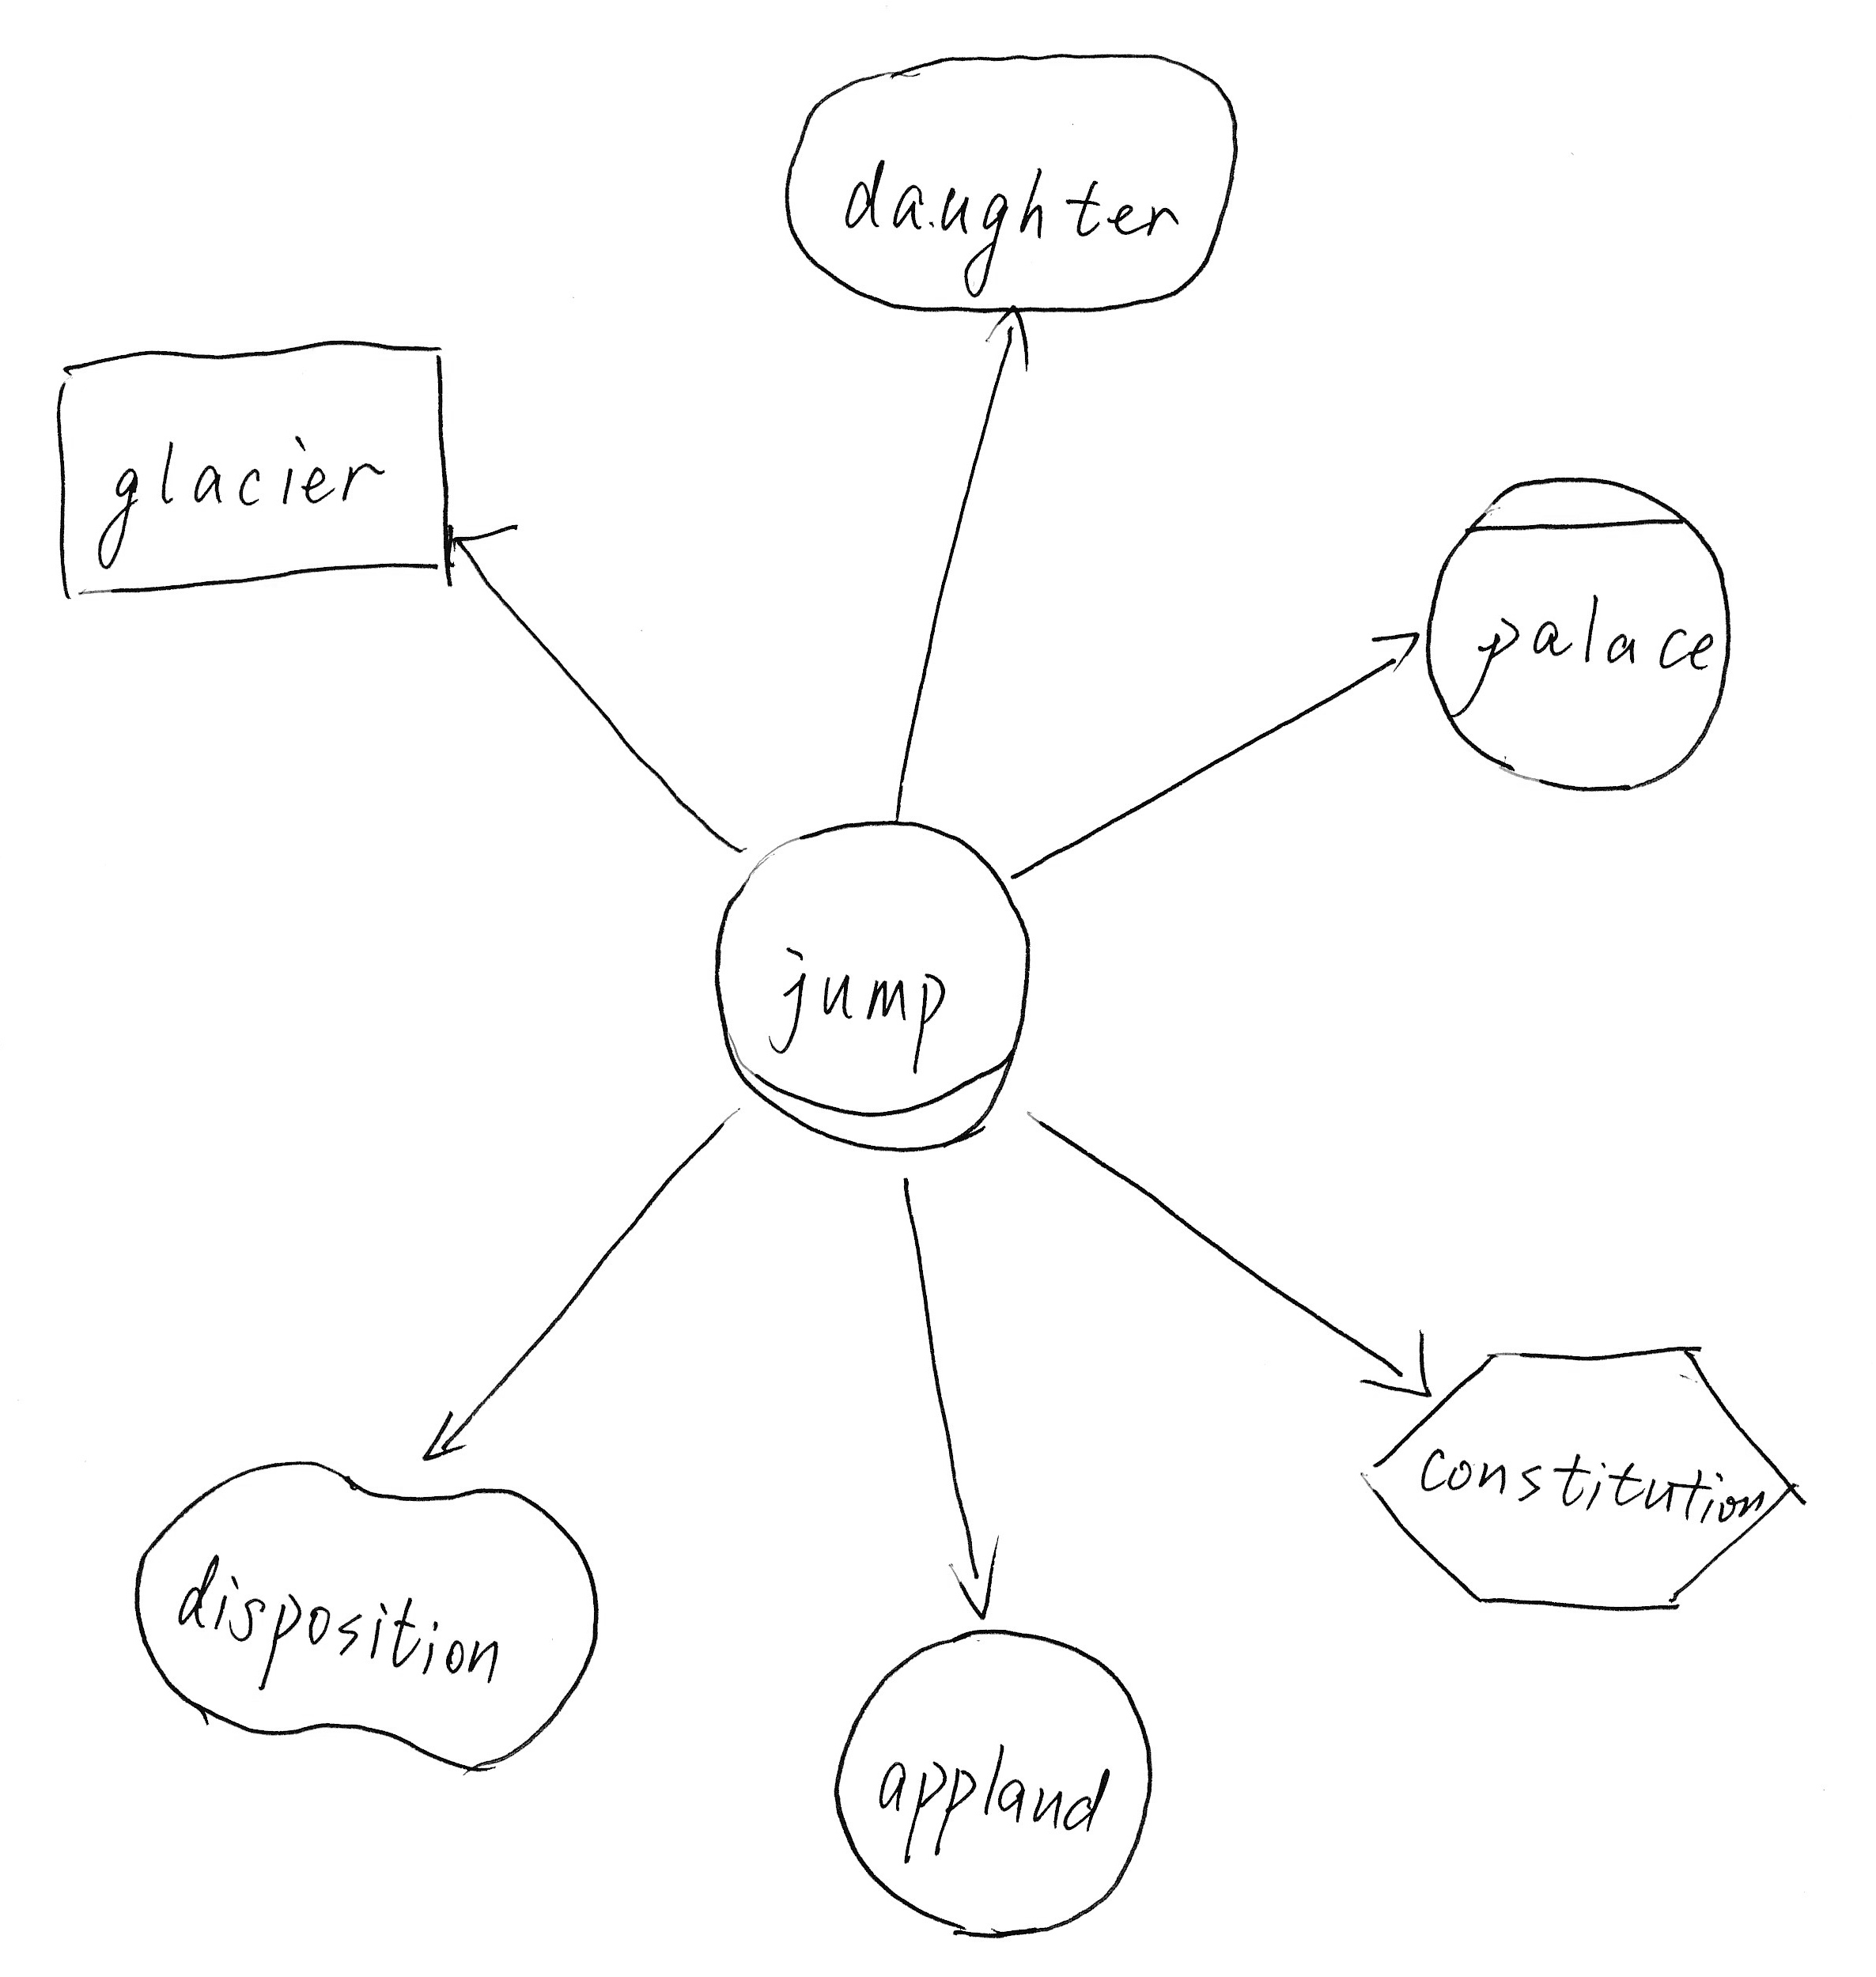 daughter
glacier
palace
jump
constitution
disposition
applaud